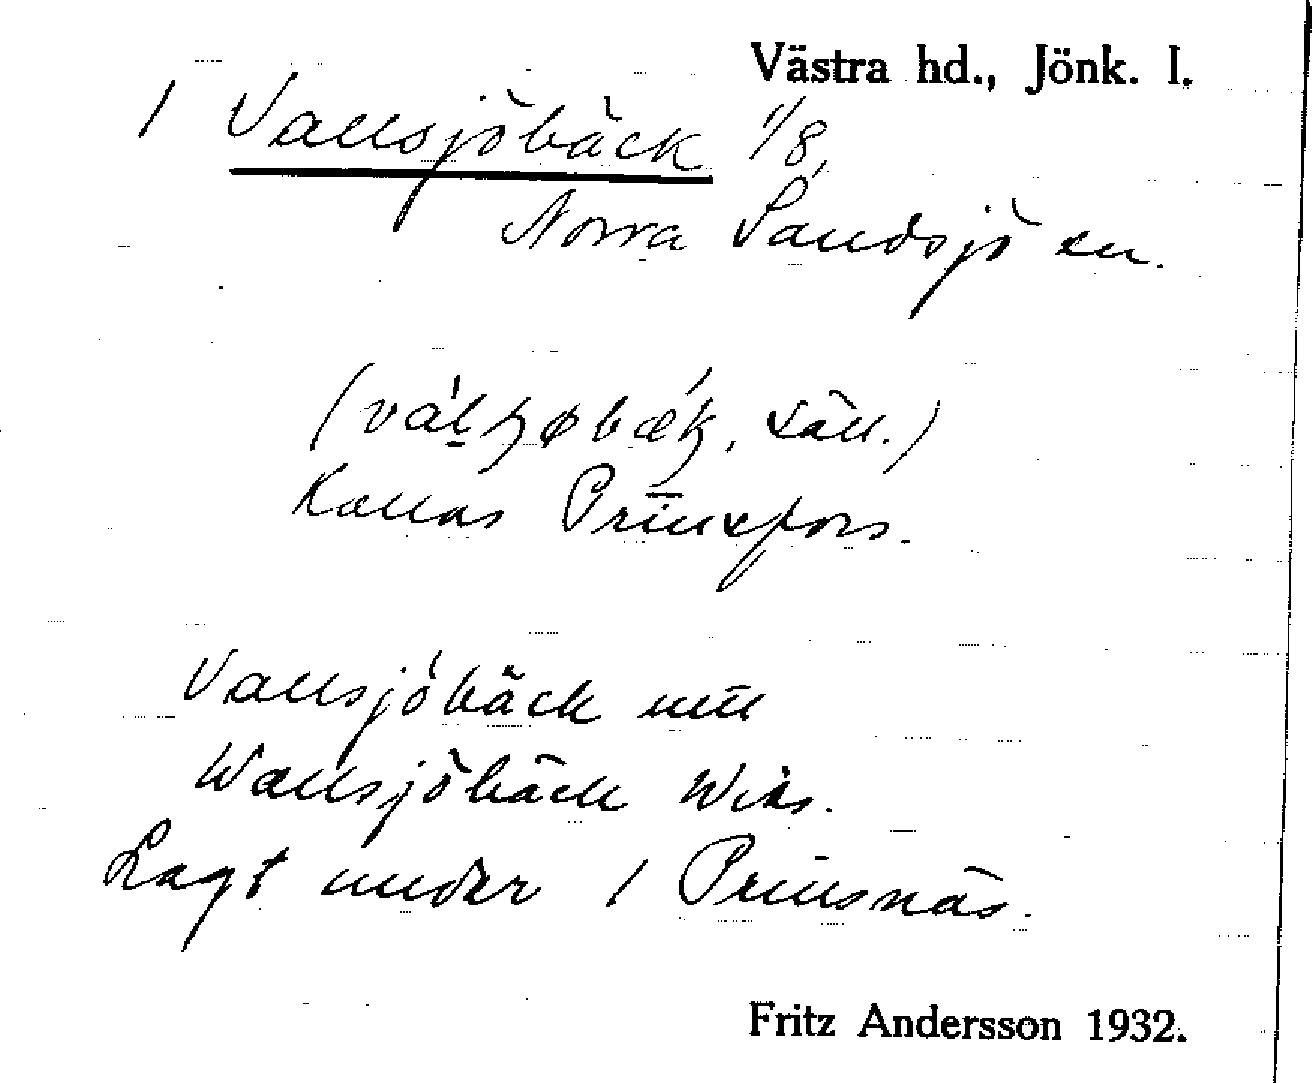 Västra hd., Jönk. l.
1 Vallsjöbäck 1/8,
Norra Sandsjö sn.
Kallas Prinsfors.
Vallsjöbäck
Wallsjöbäck
Lagt under 1 Prinsnäs.
Fritz Andersson 1932.